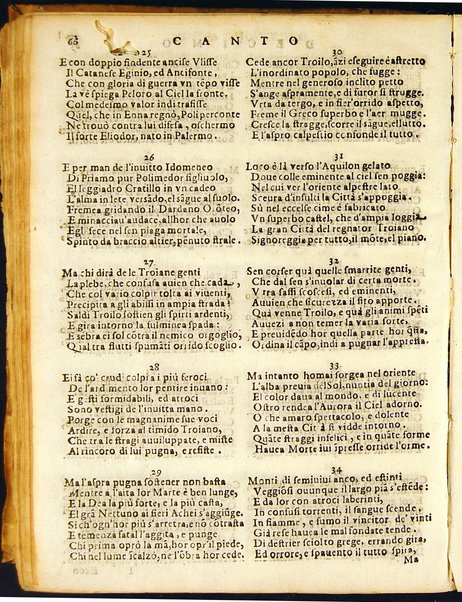 60 CANTO
25
E con doppio findente ancise Vlisse
Il Catanese Eginio, ed Antifonte,
Che con gloria di guerra vn tẽpo visse
La vè spiega Peloro al Ciel la fronte,
Col medesmo valor indi trafisse
Quel, che in Enna regnò, Poliperconte
Ne trouò contra lui difesa, o schermo
Il forte Eliodor, nato in Palermo.
26
E per man de l'inuitto Idomeneo
Di Priamo pur Polimedor figliuolo,
El leggiadro Cratillo in vn cadeo
L'alma in lete versãdo, el sãgue al suolo.
Fremea gridando il Dardano
E minacciau'audace, allhor che auolo
Egl' sece nel sen piaga mortale,
Spinto da braccio altier, pẽnuto strale.
27
Ma chi dirà de le Troiane genti
La plebe, che confusa auien che cada,
Che col vario colpir tolta ai viuenti,
Precipita a gli abissi in ampia strada?
Saldi Troilo sostien gli spirti ardenti,
E gira intorno la fulminea spada:
E sebra ci sol cõtra il nemico orgoglio,
Qual tra flutti spumãti orrido scoglio.
28
Ei fà co' crudi colpi a i più feroci
De l'ardimento lor pentire inuano:
E gesti formidabili, ed atroci
Sono vestigi de l'inuitta mano.
Porge con le magnanime sue voci
Ardire, e forza al timido Troiano,
Che tra le stragi auuiluppate, e miste
Al rincoro di lui pugna, e resiste.
29
Ma l'aspra pugna sostener non basta
Mentre a l'alta lor Marte è ben lunge,
E la Dea la più forte, e la più casta,
El grã Nettuno ai fieri Achei s'aggiũge.
Sich'ogn'hor più s'arretra, e nõ cõtrasta
E temenza fatal l'aggita, e punge
Chi prima oprò la mã, hor opr'il piede,
Chi nel lume scalzò, ne l'õbra hor cede.
30
Cede ancor Troilo, ãzi eseguir è astretto
L'inordinato popolo, che fugge:
Mentre nel generoso inclito petto
S'ange aspramente, e di furor si strugge.
Vrta da tergo, e in fier'orrido aspetto,
Freme il Greco superbo e l'aer mugge.
Cresce la stragge, scorre il sãgue, el lutto.
E l'aspro calpestio cõfonde il tutto.
31
Loro è là verso l'Aquilon gelato
Doue colle eminente al ciel sen poggia:
Nel cui vertice alpestre lato
Sceura d'insulti la Città s'appoggia.
Sù nel eccelse cime è fabricato
Vn superbo castel, che d'ampia loggia
La gran Città del regnator Troiano
Signoreggia per tutto, il mõte, el piano.
32
Sen corser quà quelle smarrite genti,
Che dal sen s'inuolar di certa morte.
V trà sassi scoscesi, ed eminenti,
Auuien che sicurezza il sito apporte.
Quà venne Troilo, e quà gli animi speti
Auuezi a non temer la varia sorte,
E preuidẽdo hor quella parte hor q̃sta,
Ordina il cãpo, indi a pugnar l'appresta.
33
Ma intanto homai sorgea nel oriente
L'alba preuia del Sol, nuntia del giorno:
El color daua al mondo, e di lucente
Ostro rendea l'Aurora il Ciel adorno.
O che amaro spettacolo, e dolente
A la mesta Cit à si vidde intorno.
Quãte straggi infelici, e in quãte forme
Hauea Morte iui ipresse orride l'orme.
34
Monti di semiuiui anco, ed estinti
Veggiosi ouunque il largo piã s'estẽde:
E da lor con atroci laberinti,
In confusi torrenti, il sangue scende,
In fiamme, e fumo il vincitor de' vinti
Già rese hauea le mal fondate tende.
Di destrier sciolto grege, errando gira,
Ed orrore, e spauento il tutto spira,
Ma